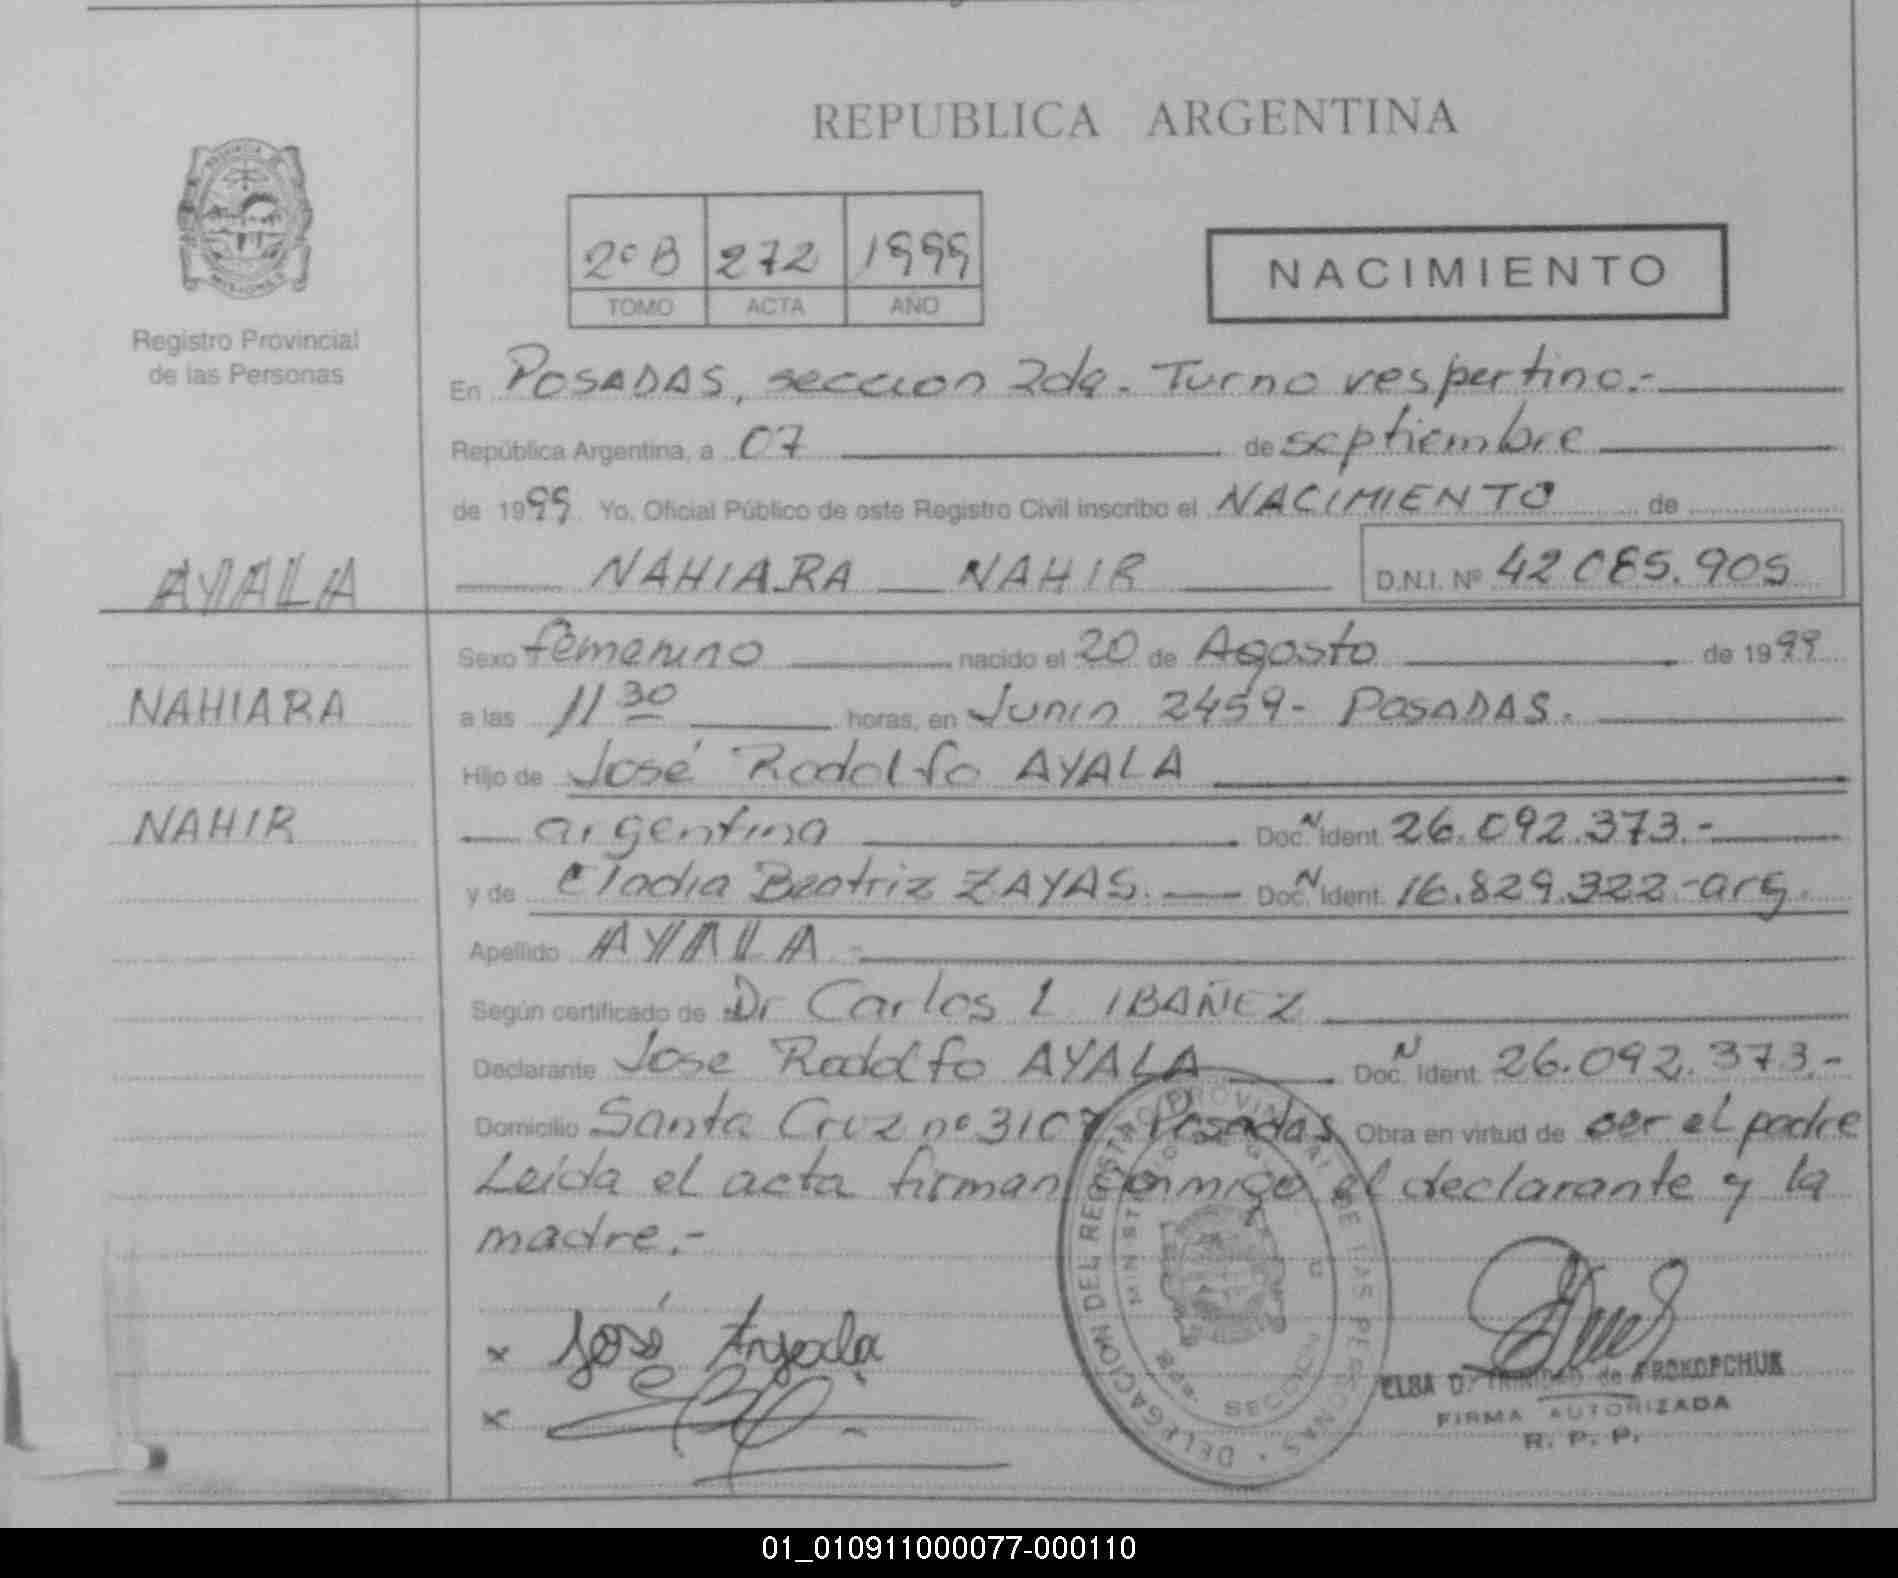 REPUBLICA ARGENTINA
PROVINCIA DE
MISIONES
Registro Provincial
de las Personas
2º B 272 1999
TOMO ACTA AÑO
NACIMIENTO
En POSADAS, seccion 2da. Turno vespertino.-
República Argentina, a 07 de septiembre
de 1999 Yo, Oficial Público de este Registro Civil inscribo el NACIMIENTO de
AYALA
NAHIARA NAHIR D.N.I. Nº 42.085.905
Sexo femenino nacido el 20 de Agosto de 1999
NAHIARA
a las 11 30 horas, en Junin 2459- POSADAS.
Hijo de José Rodolfo AYALA
NAHIR
argentino Doc. N Ident. 26.092.373.-
y de Eladia Beatriz ZAYAS. Doc. N Ident. 16.829.322-arg.
Apellido AYALA.-
Según certificado de Dr Carlos L IBAÑEZ
Declarante Jose Rodolfo AYALA Doc. N Ident. 26.092.373.-
Domicilio Santa Cruz nº 3107 Posadas Obra en virtud de ser el padre
Leida el acta firman conmigo el declarante y la
madre.-
x José Ayala
x
DELEGACION DEL REGISTRO PROVINCIAL DE LAS PERSONAS
SECCION
ELBA D. TRINIDAD de PROKOPCHUK
FIRMA AUTORIZADA
R. P. P.
01_010911000077-000110